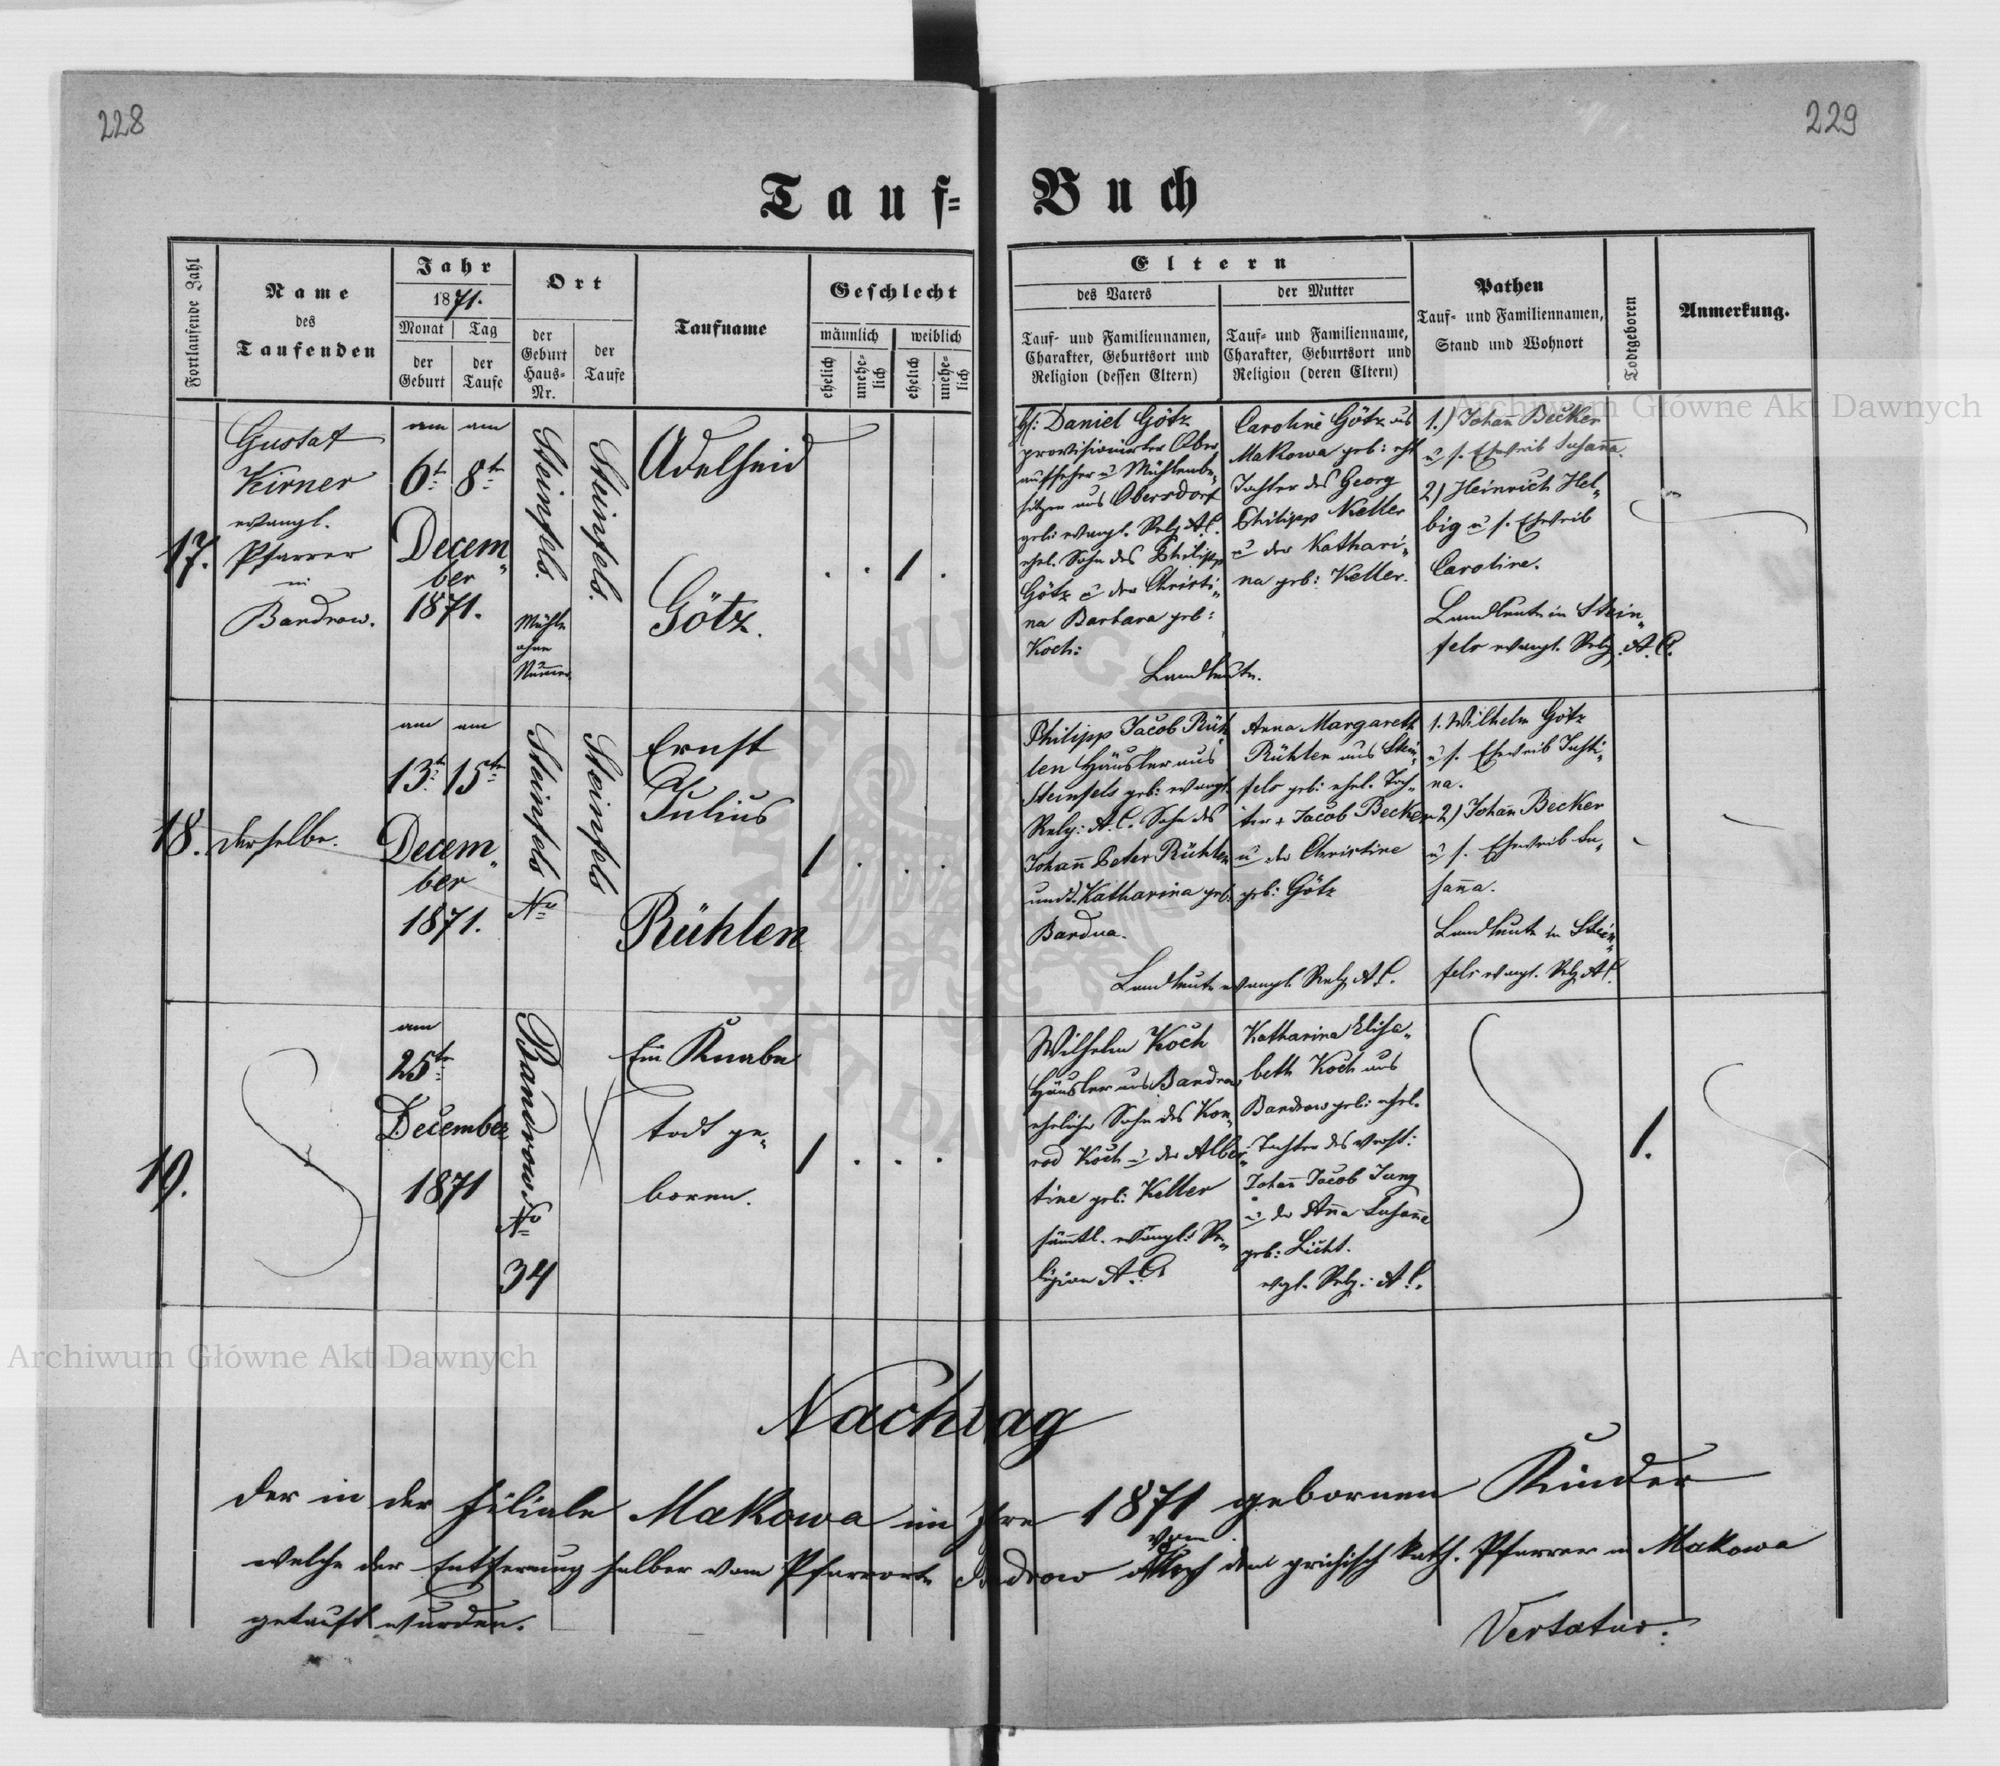 228
229
Tauf= Buch
Fortlaufende Zahl
Name
des
Taufenden
Jahr
1871.
Monat
Tag
der
Geburt
der
Taufe
Ort
der
Geburt
Haus=
Nr.
der
Taufe
Taufname
Geschlecht
männlich
weiblich
ehelich
unehe=
lich
ehelich
unehe=
lich
Eltern
des Vaters
der Mutter
Tauf= und Familiennamen,
Charakter, Geburtsort und
Religion (dessen Eltern)
Tauf= und Familienname,
Charakter, Geburtsort und
Religion (deren Eltern)
Pathen
Tauf= und Familiennamen,
Stand und Wohnort
Todtgeboren
Anmerkung.
17.
Gustaf
Kirner
evangl.
Pfarrer
in
Bandrow.
am am
6t. 8t.
Decem„
ber
1871.
Steinfels.
Mühle
ohne
Numer.
Steinfels.
Adelheid
Götz.
. . 1 .
Daniel Götz
provisionirter Ober
aufseher u Mühlenbe„
sitzer aus Obersdorf
geb: evangl. Relg. A.C.
ehel. Sohn des Philipp
Götz u der Christi„
na Barbara geb:
Koch:
Landleute.
Caroline Götz aus
Makowa geb: ehl
Tochter des Georg
Philipp Keller
u der Kathari„
na geb: Keller.
1.) Johañ Becker
u s. Eheweib Susaña.
2.) Heinrich Hel„
big u s. Eheweib
Caroline.
Landleute in Stein„
fels evangl. Relg. A.C.
18.
derselbe.
am am
13t. 15t.
Decem„
ber
1871.
Steinfels No
Steinfels
Ernst
Julius
Rühlen
1 . . .
Philipp Jacob Rüh„
len Häusler aus
Steinfels geb: evangl.
Relg: A.C. Sohn des
Johañ Peter Rühlen
und d. Katharina geb.
Bardua.
Landleute evangl. Relg A.C.
Anna Margareth
Rühlen aus Stein„
fels geb: ehel. Toch„
ter + Jacob Becker
u der Christine
geb: Götz
1. Wilhelm Götz
u s. Eheweib Justi„
na.
2.) Johañ Becker
u s. Eheweib Su„
saña.
Landleute in Stein„
fels evangl. Relg A.C.
19.
am
25t.
December
1871
Bandrow No
34
Ein Knabe
todt ge„
boren.
1 . . .
Wilhelm Koch
Häusler aus Bandrow
ehelicher Sohn des Kon„
rad Koch u der Alber„
tine geb: Keller
sämtl. evangl: Re„
ligion A.C.
Katharina Elisa„
beth Koch aus
Bandrow geb: ehel.
Tochter des verst:
Johañ Jacob Jung
u der Aña Susañe
geb: Licht.
evgl. Relg.: A.C.
1.
Nachtrag
der in der Filiale Makowa im Jhre 1871 gebornen Kinder
welche der Entfernung halber vom Pfarrorte Bandrow vom griechisch kath. Pfarrer in Makowa
getauft wurden.
Vertatur.
Archiwum Główne Akt Dawnych
Archiwum Główne Akt Dawnych